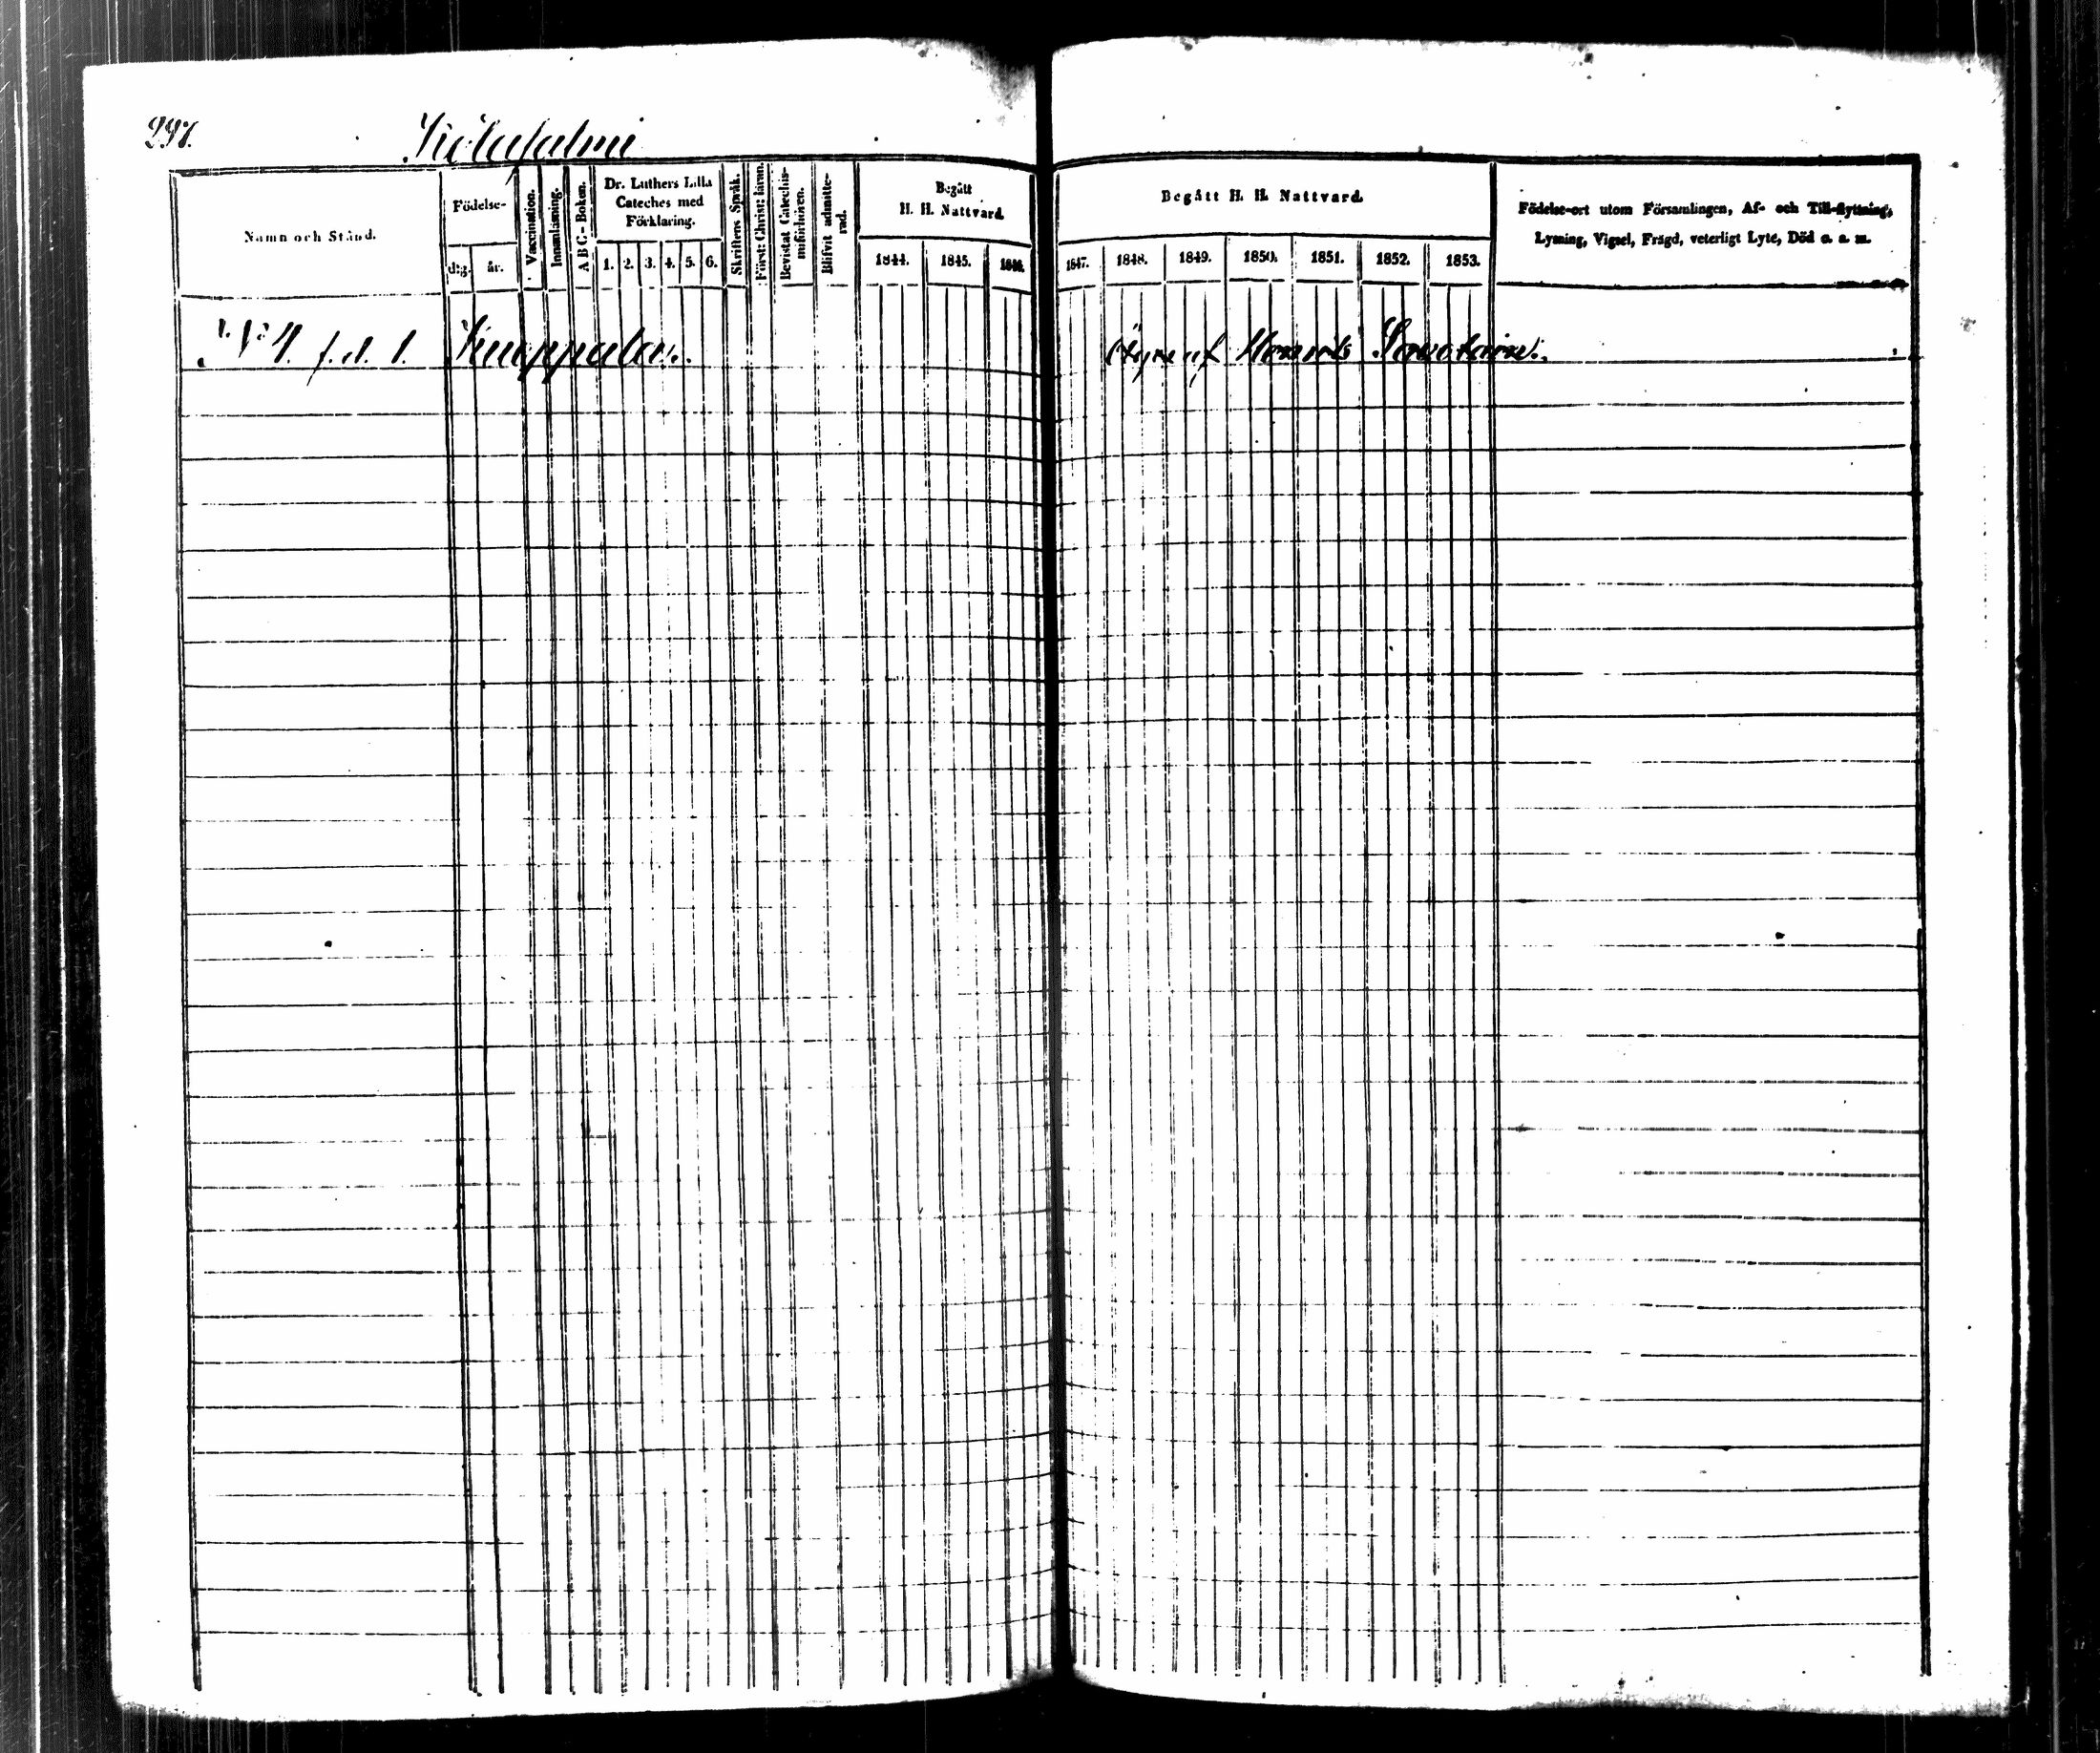 297.
Kiölajalmi
Namn och Stånd.
Födelse-
dag.
år.
Vaccination.
Innanläsning.
A B C - Boken.
Dr. Luthers Lilla
Cateches med
Förklaring.
1. 2. 3. 4. 5. 6.
Skriftens Språk.
Först: Christ: läran.
Bevistat Catechis-
miförhören.
Blifvit admitte-
rad.
Begått
H. H. Nattvard
1844. 1845. 1846.
Begått H. H. Nattvard.
1847. 1848. 1849. 1850. 1851. 1852. 1853.
Födelse-ort utom Församlingen, Af- och Till-flyttning,
Lysning, Vigsel, Frägd, veterligt Lyte, Död o. a. m.
f. d. 1. Knuppala. äges af Savotaine.